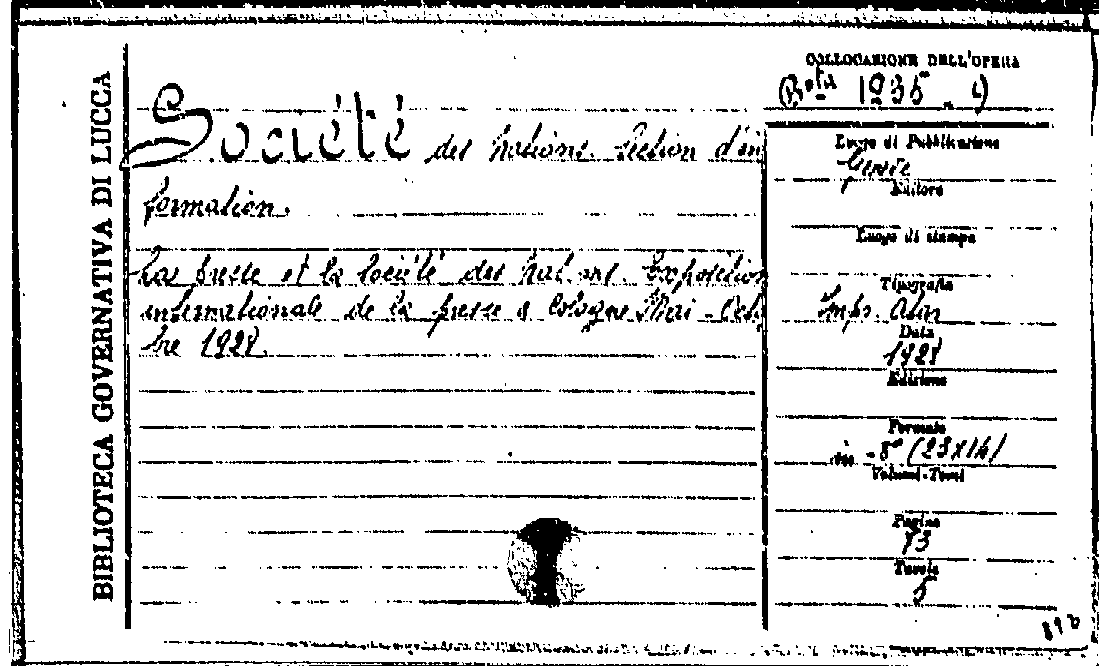 BIBLIOTECA GOVERNATIVA DI LUCCA
COLLOCAZIONE DELL'OPERA
Bota 1935. 9
Société des Nations. Section d'in
formation.
La presse et la Société des Nations. Exposition
internationale de la presse à Cologne Mai - Octo
bre 1928.
Luogo di Pubblicazione
Editore
Luogo di stampa
Tipografia
Imp. Atar
Data
1928
Edizione
Formato
in - 8° (23x14)
Volumi-Tomi
Pagine
73
Tavole
5